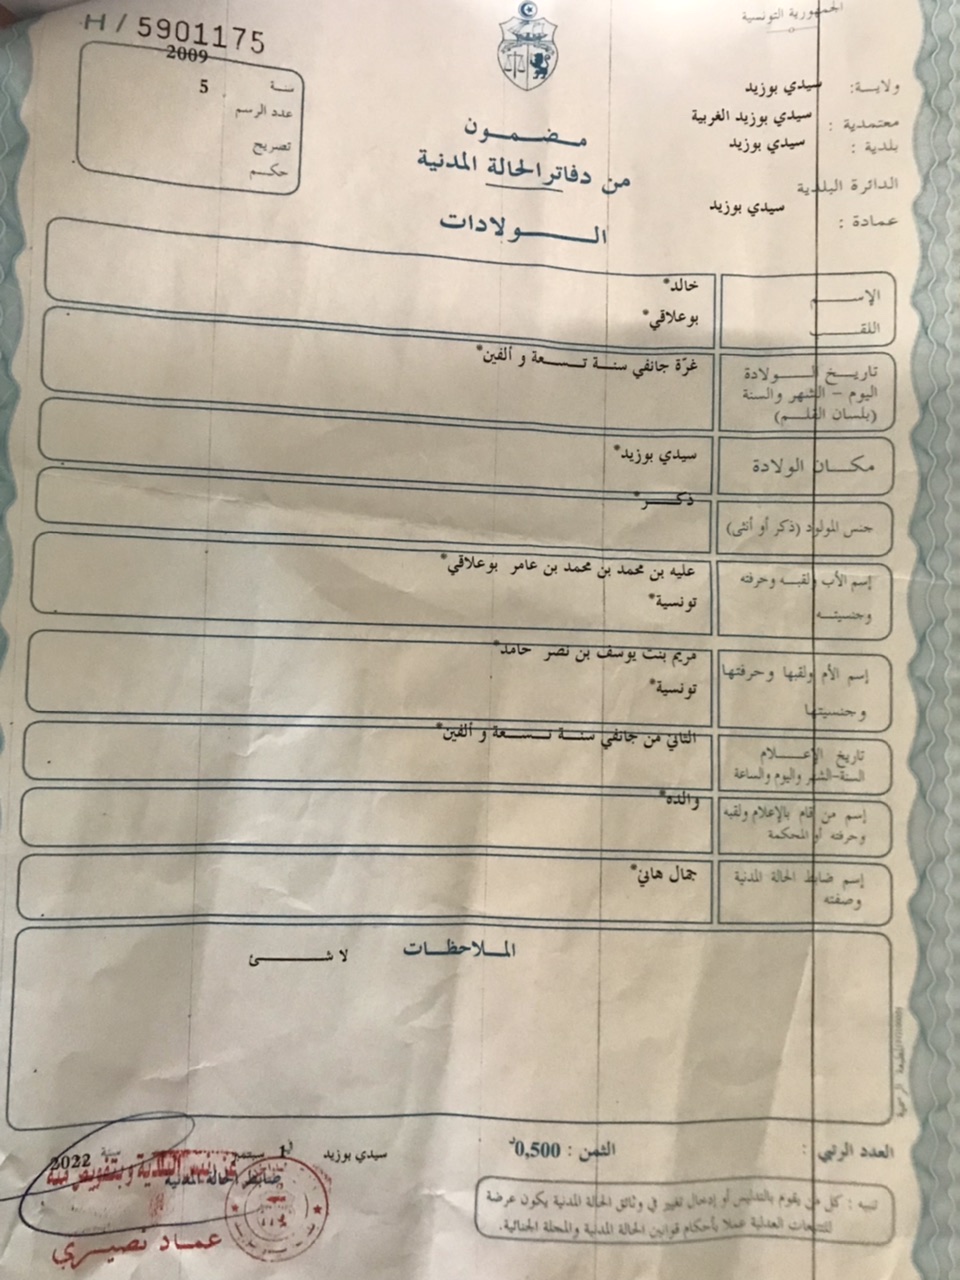 الجمهورية التونسية
H / 5901175
سنة 2009
عدد الرسم 5
تصريح
حكم
ولاية: سيدي بوزيد
معتمدية : سيدي بوزيد الغربية
بلدية : سيدي بوزيد
الدائرة البلدية
عمادة : سيدي بوزيد
مضمون
من دفاتر الحالة المدنية
الولادات
الإسم خالد*
اللقب بوعلاقي*
تاريخ الولادة غرّة جانفي سنة تسعة و ألفين*
اليوم - الشهر والسنة
(بلسان القلم)
مكان الولادة سيدي بوزيد*
جنس المولود (ذكر أو أنثى) ذكر*
إسم الأب ولقبه وحرفته عليه بن محمد بن محمد بن عامر بوعلاقي*
وجنسيته تونسية*
إسم الأم ولقبها وحرفتها مريم بنت يوسف بن نصر حامد*
وجنسيتها تونسية*
تاريخ الإعلام الثاني من جانفي سنة تسعة و ألفين*
السنة-الشهر واليوم والساعة
إسم من قام بالإعلام ولقبه والده*
وحرفته أو المحكمة
إسم ضابط الحالة المدنية جمال هاني*
وصفته
الملاحظات
لا شئ
العدد الرتبي :
الثمن : 0,500د
سيدي بوزيد في 1 سبتمبر سنة 2022
ضابط الحالة المدنية
عن رئيس البلدية وبتفويض منه
عماد نصيري
تنبيه : كل من يقوم بالتدليس أو إدخال تغيير في وثائق الحالة المدنية يكون عرضة
للتتبعات العدلية عملا بأحكام قوانين الحالة المدنية والمجلة الجنائية.